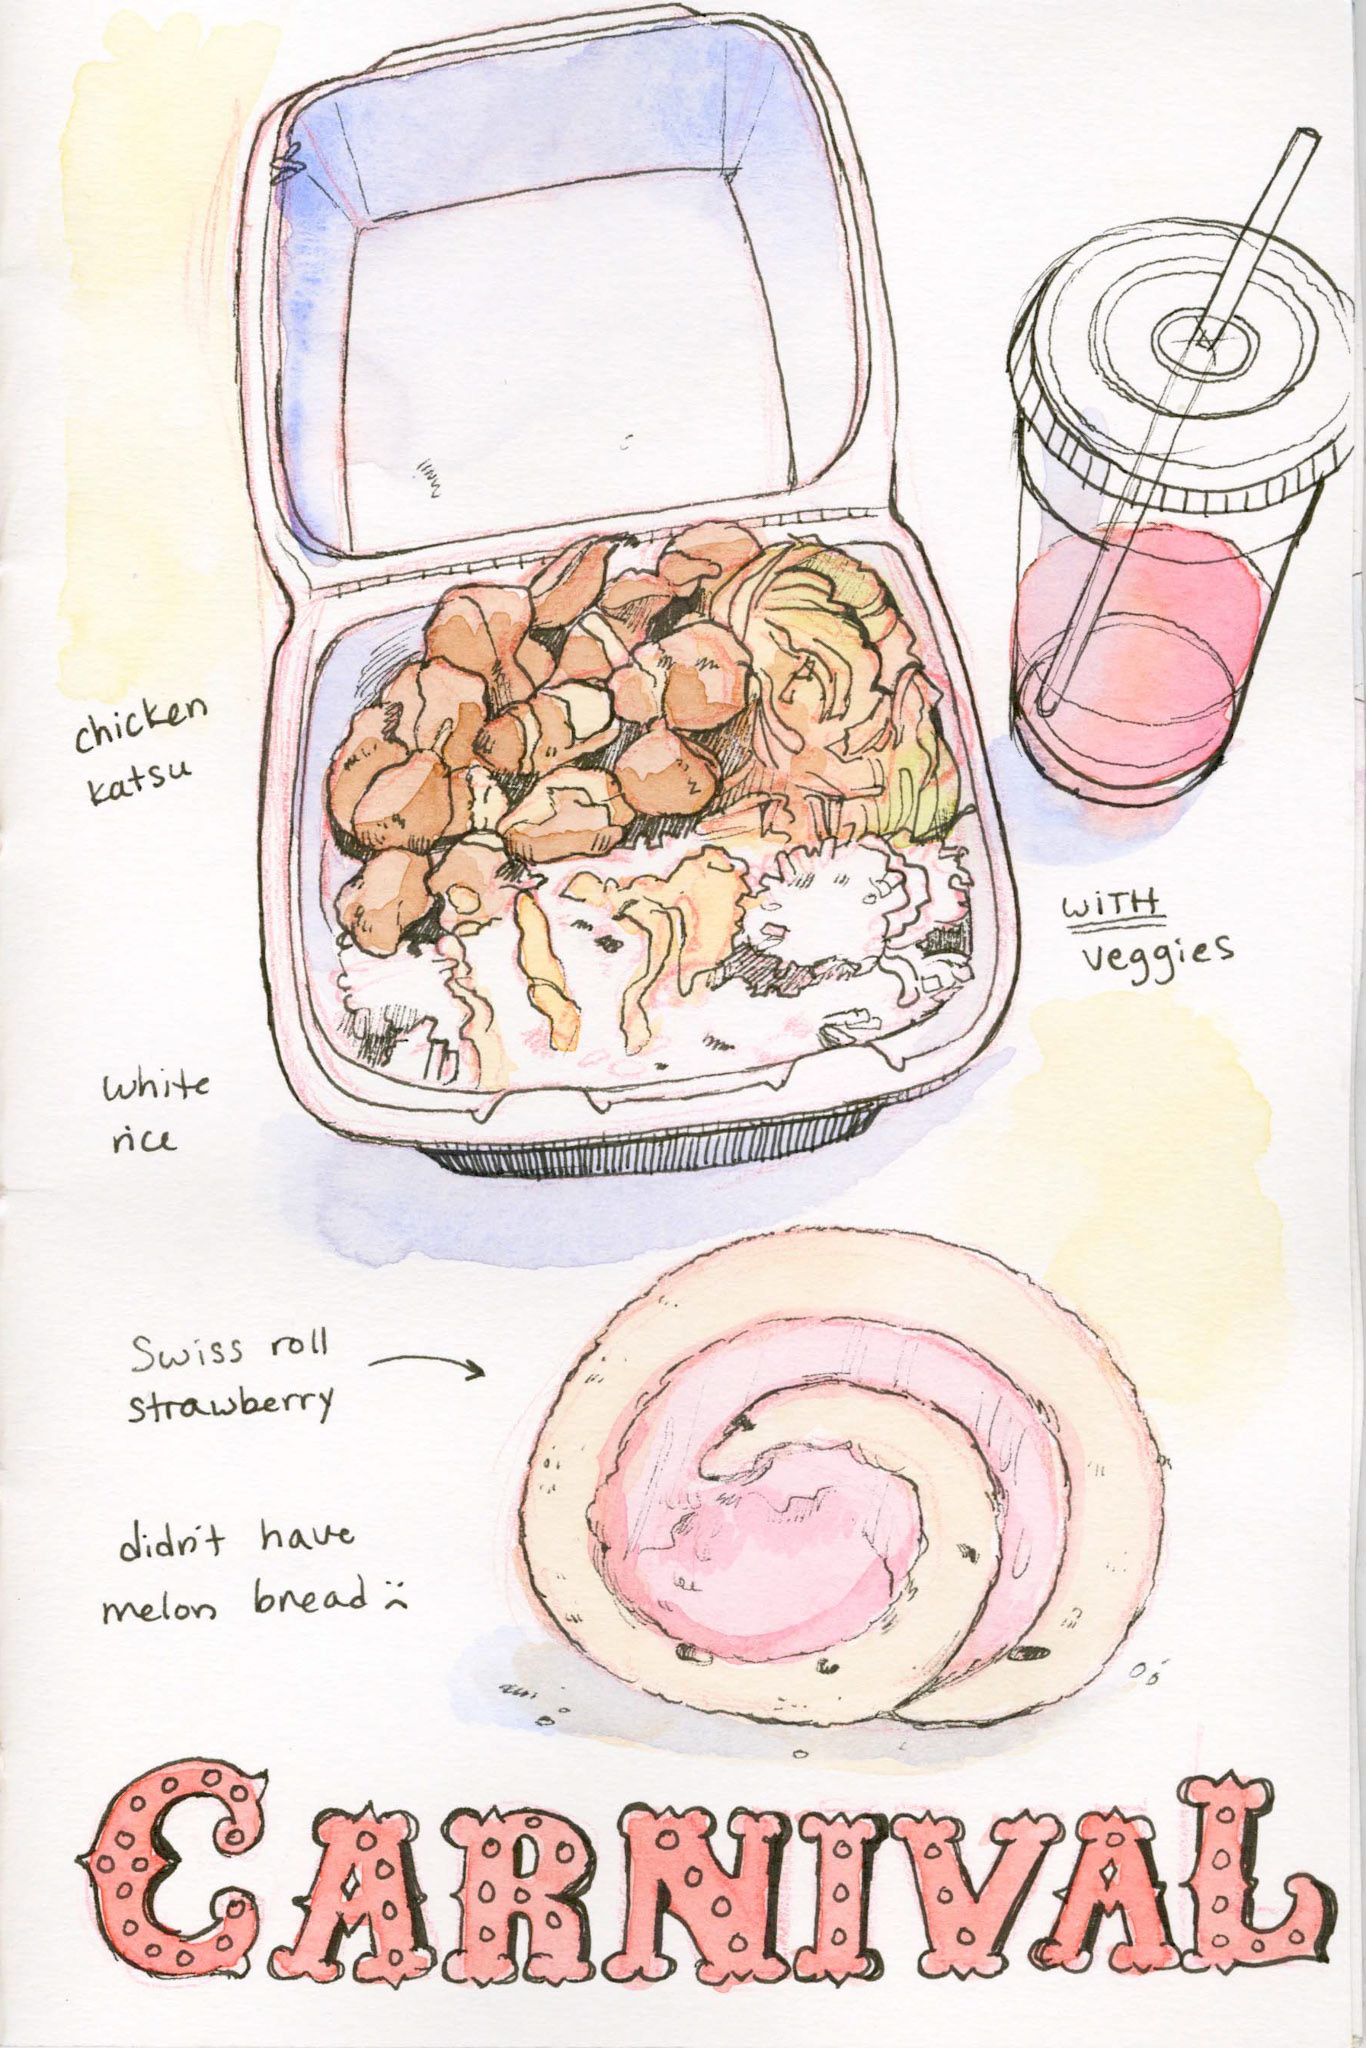 chicken
katsu
WiTH
veggies
white
rice
Swiss roll
strawberry
didn't have
melon bread
CARNIVAL